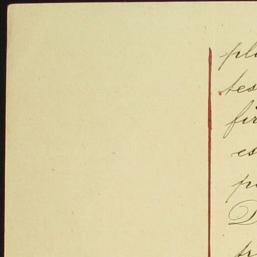 pl
tes
fir
es
p
D
fr